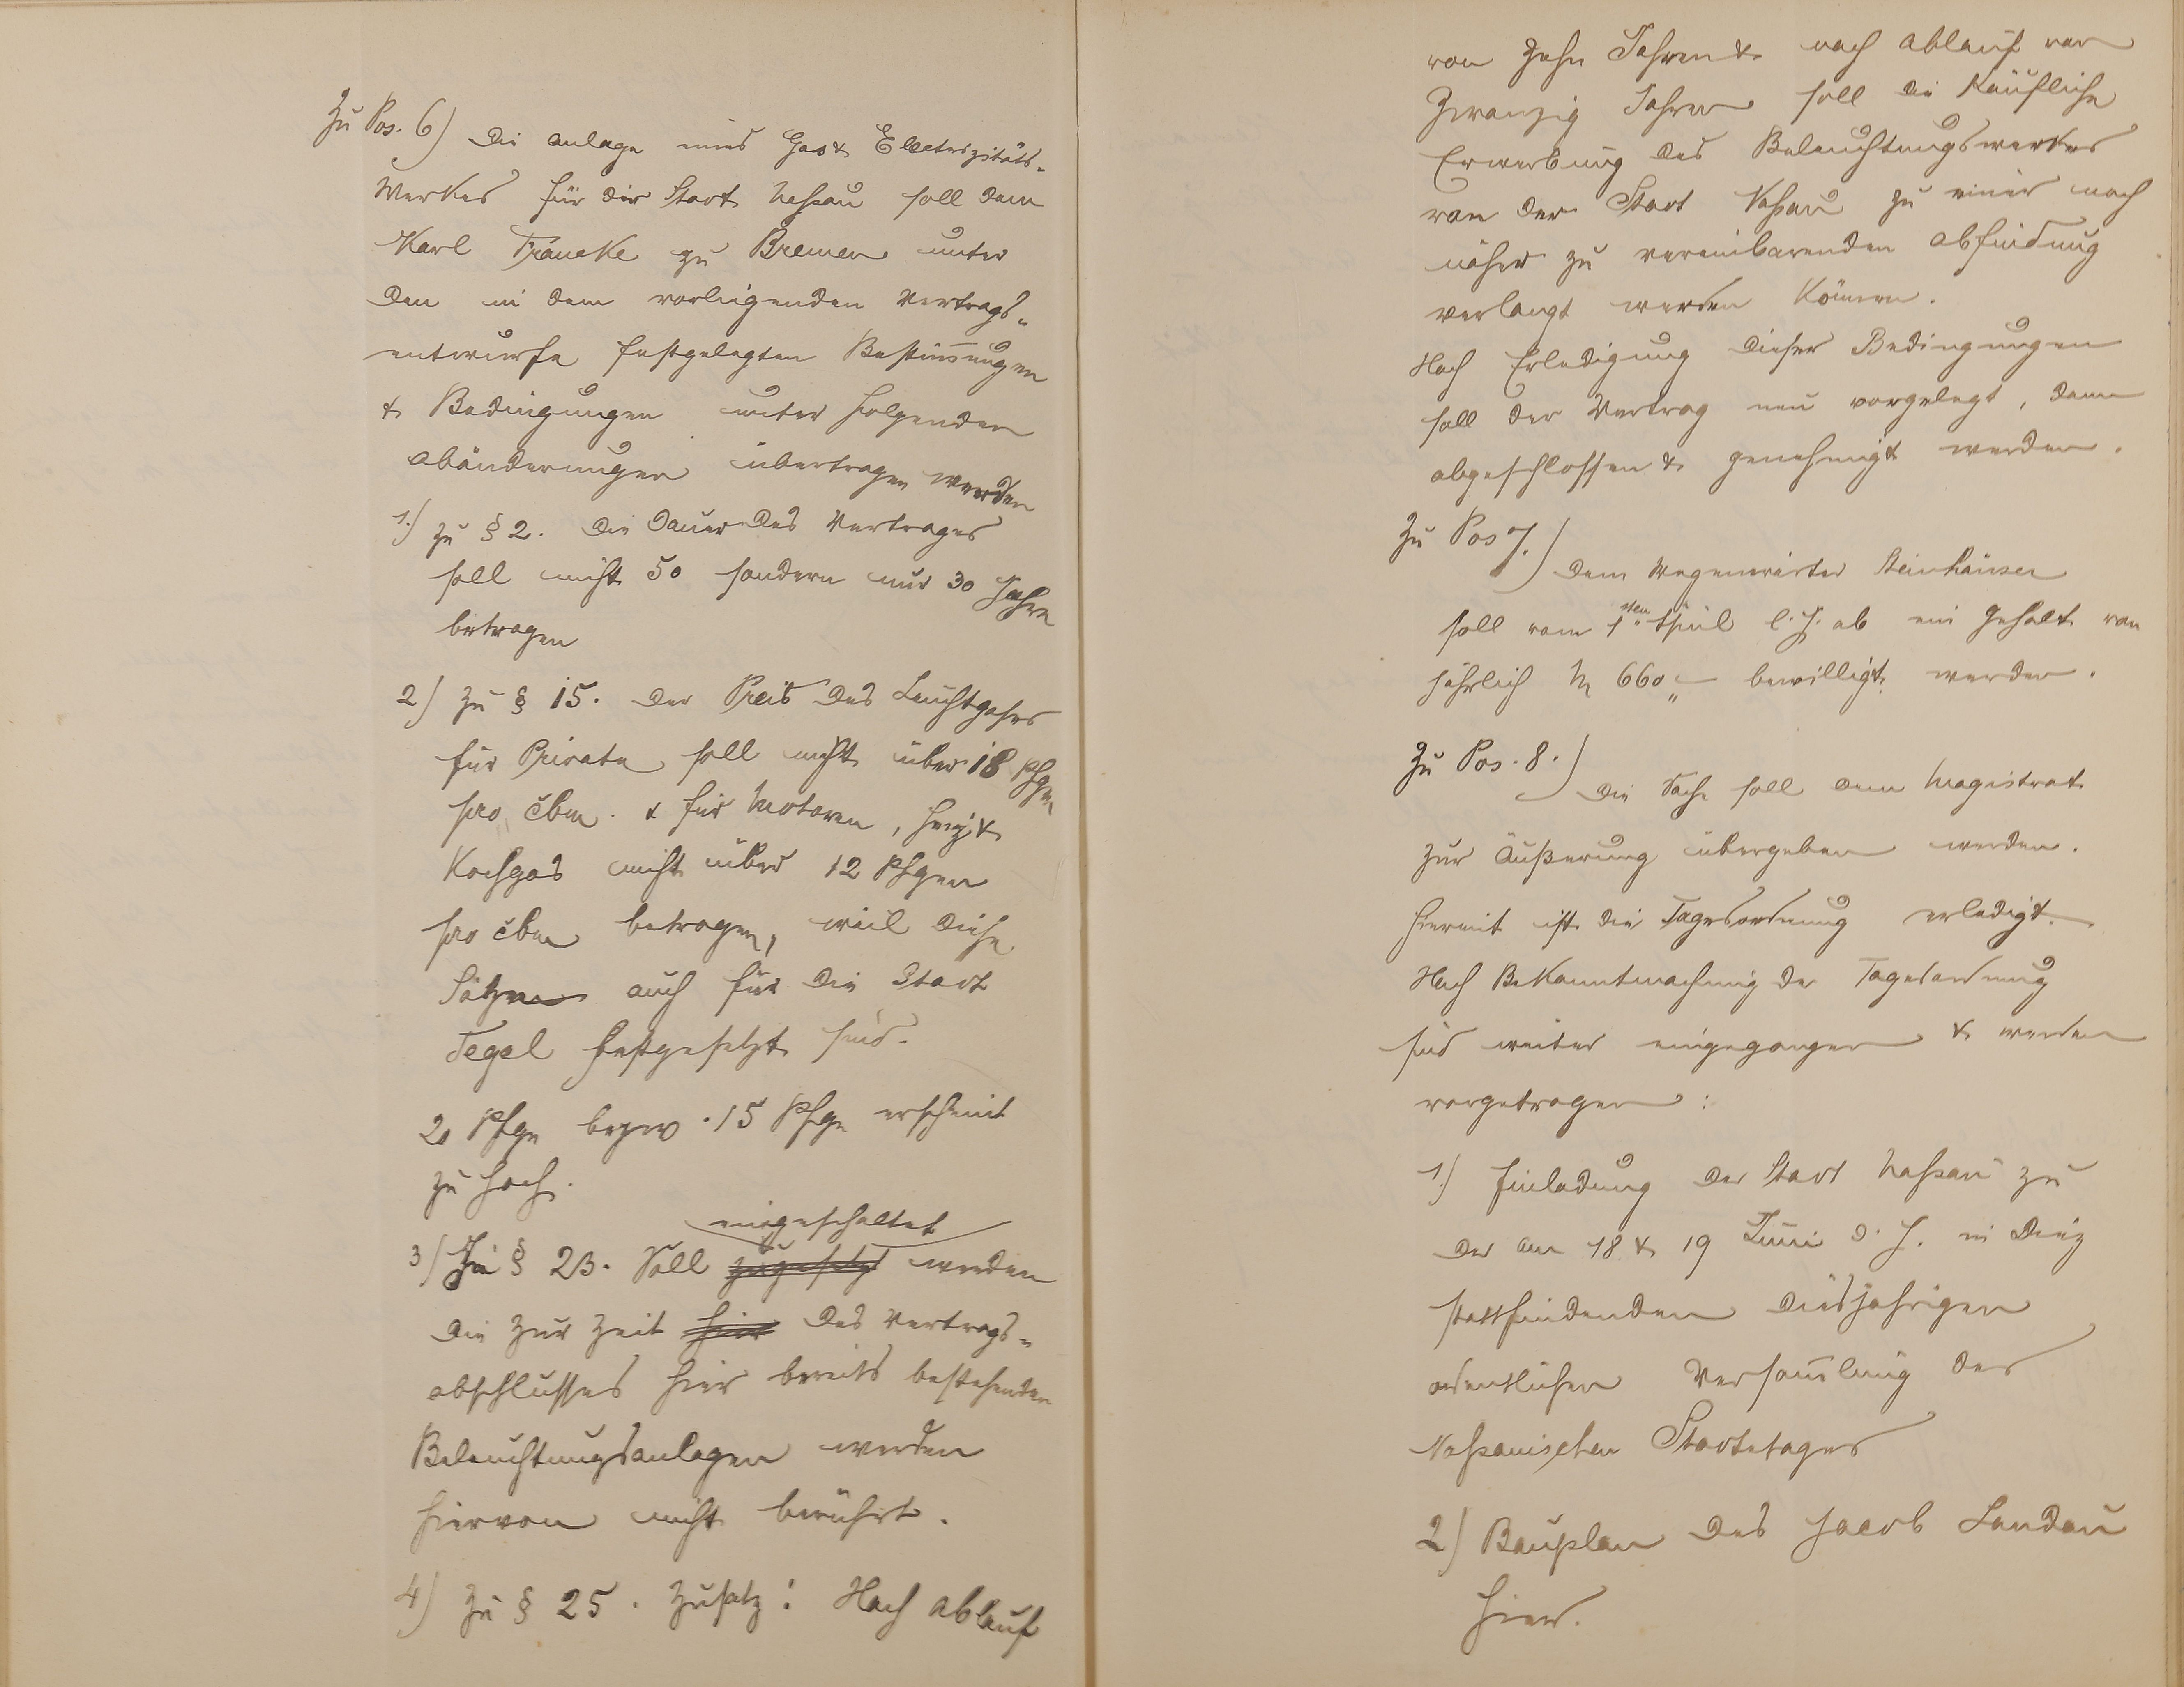 Zu Pos. 6) Die Anlage eines Gas & Electrizitäts-
Werkes für die Stadt Naßau soll dem
Karl Francke zu Bremen unter
den in dem vorliegenden Vertrags-
entwurfe festgelegten Bestim̄ungen
& Bedingungen unter folgenden
Abänderungen übertragen werden
1.) zu § 2. Die Dauer des Vertrages
soll nicht 50 sondern nur 30 Jahre
betragen
2) zu § 15. Der Preis des Leuchtgases
für Private soll nicht über 18 Pfgen
pro cbm. & für Motoren, Heiz &
Kochgas nicht über 12 Pfgen
pro cbm betragen, weil diese
Sätze auch für die Stadt
Tegel festgesetzt sind.
20 Pfge bezw. 15 Pfge erscheint
zu hoch.
eingeschaltet
3) Zu § 23. Soll zugesetzt werden
die zur Zeit hier des Vertrags-
abschlusses hier bereits bestehenden
Beleuchtungsanlagen werden
hiervon nicht berührt.
4) zu § 25. Zusatz: Nach Ablauf
von zehn Jahren & nach Ablauf von
Zwanzig Jahren soll die Käufliche
Erwerbung des Beleuchtungswerkes
von der Stadt Naßau zu einer noch
näher zu vereinbarenden Abfindung
verlangt werden können.
Nach Erledigung dieser Bedingungen
soll der Vertrag neu vorgelegt, dann
abgeschlossen & genehmigt werden.
Zu Pos 7.) Dem Wegewärter Steinhäuser
soll vom 1ten April l. J. ab ein Gehalt von
jährlich M 660,- bewilligt werden.
Zu Pos. 8.) Die Sache soll dem Magistrat
zur Äußerung übergeben werden.
Hiermit ist die Tagesordnung erledigt.
Nach Bekanntmachung der Tagesordnung
sind weiter eingegangen & werden
vorgetragen:
1.) Einladung der Stadt Naßau zu
der am 18 & 19 Juni d. J. in Diez
stattfindenden diesjährigen
ordentlichen Versam̄lung des
Naßauischen Stadtetages
2) Bauplan des Jacob Landau
hier.